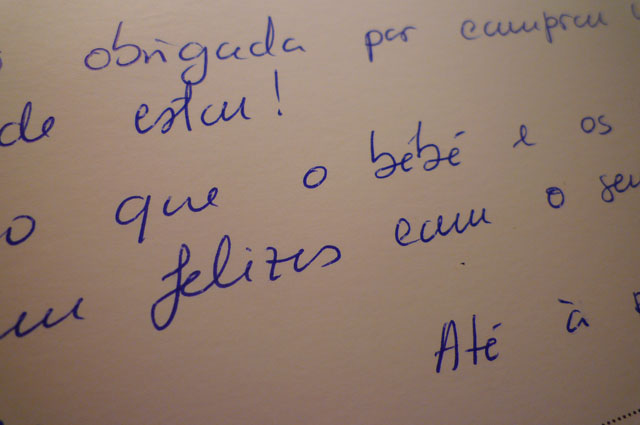 obrigada por comprar
de estar!
que o bébé e os
felizes com o seu
Até à